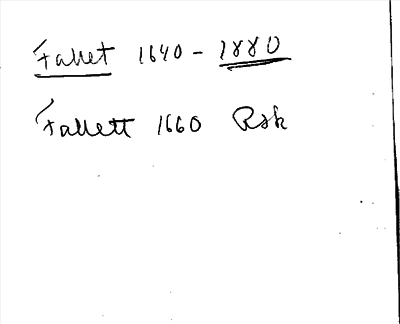 Fallet 1640 - 1880
Fallett 1660 Rsk